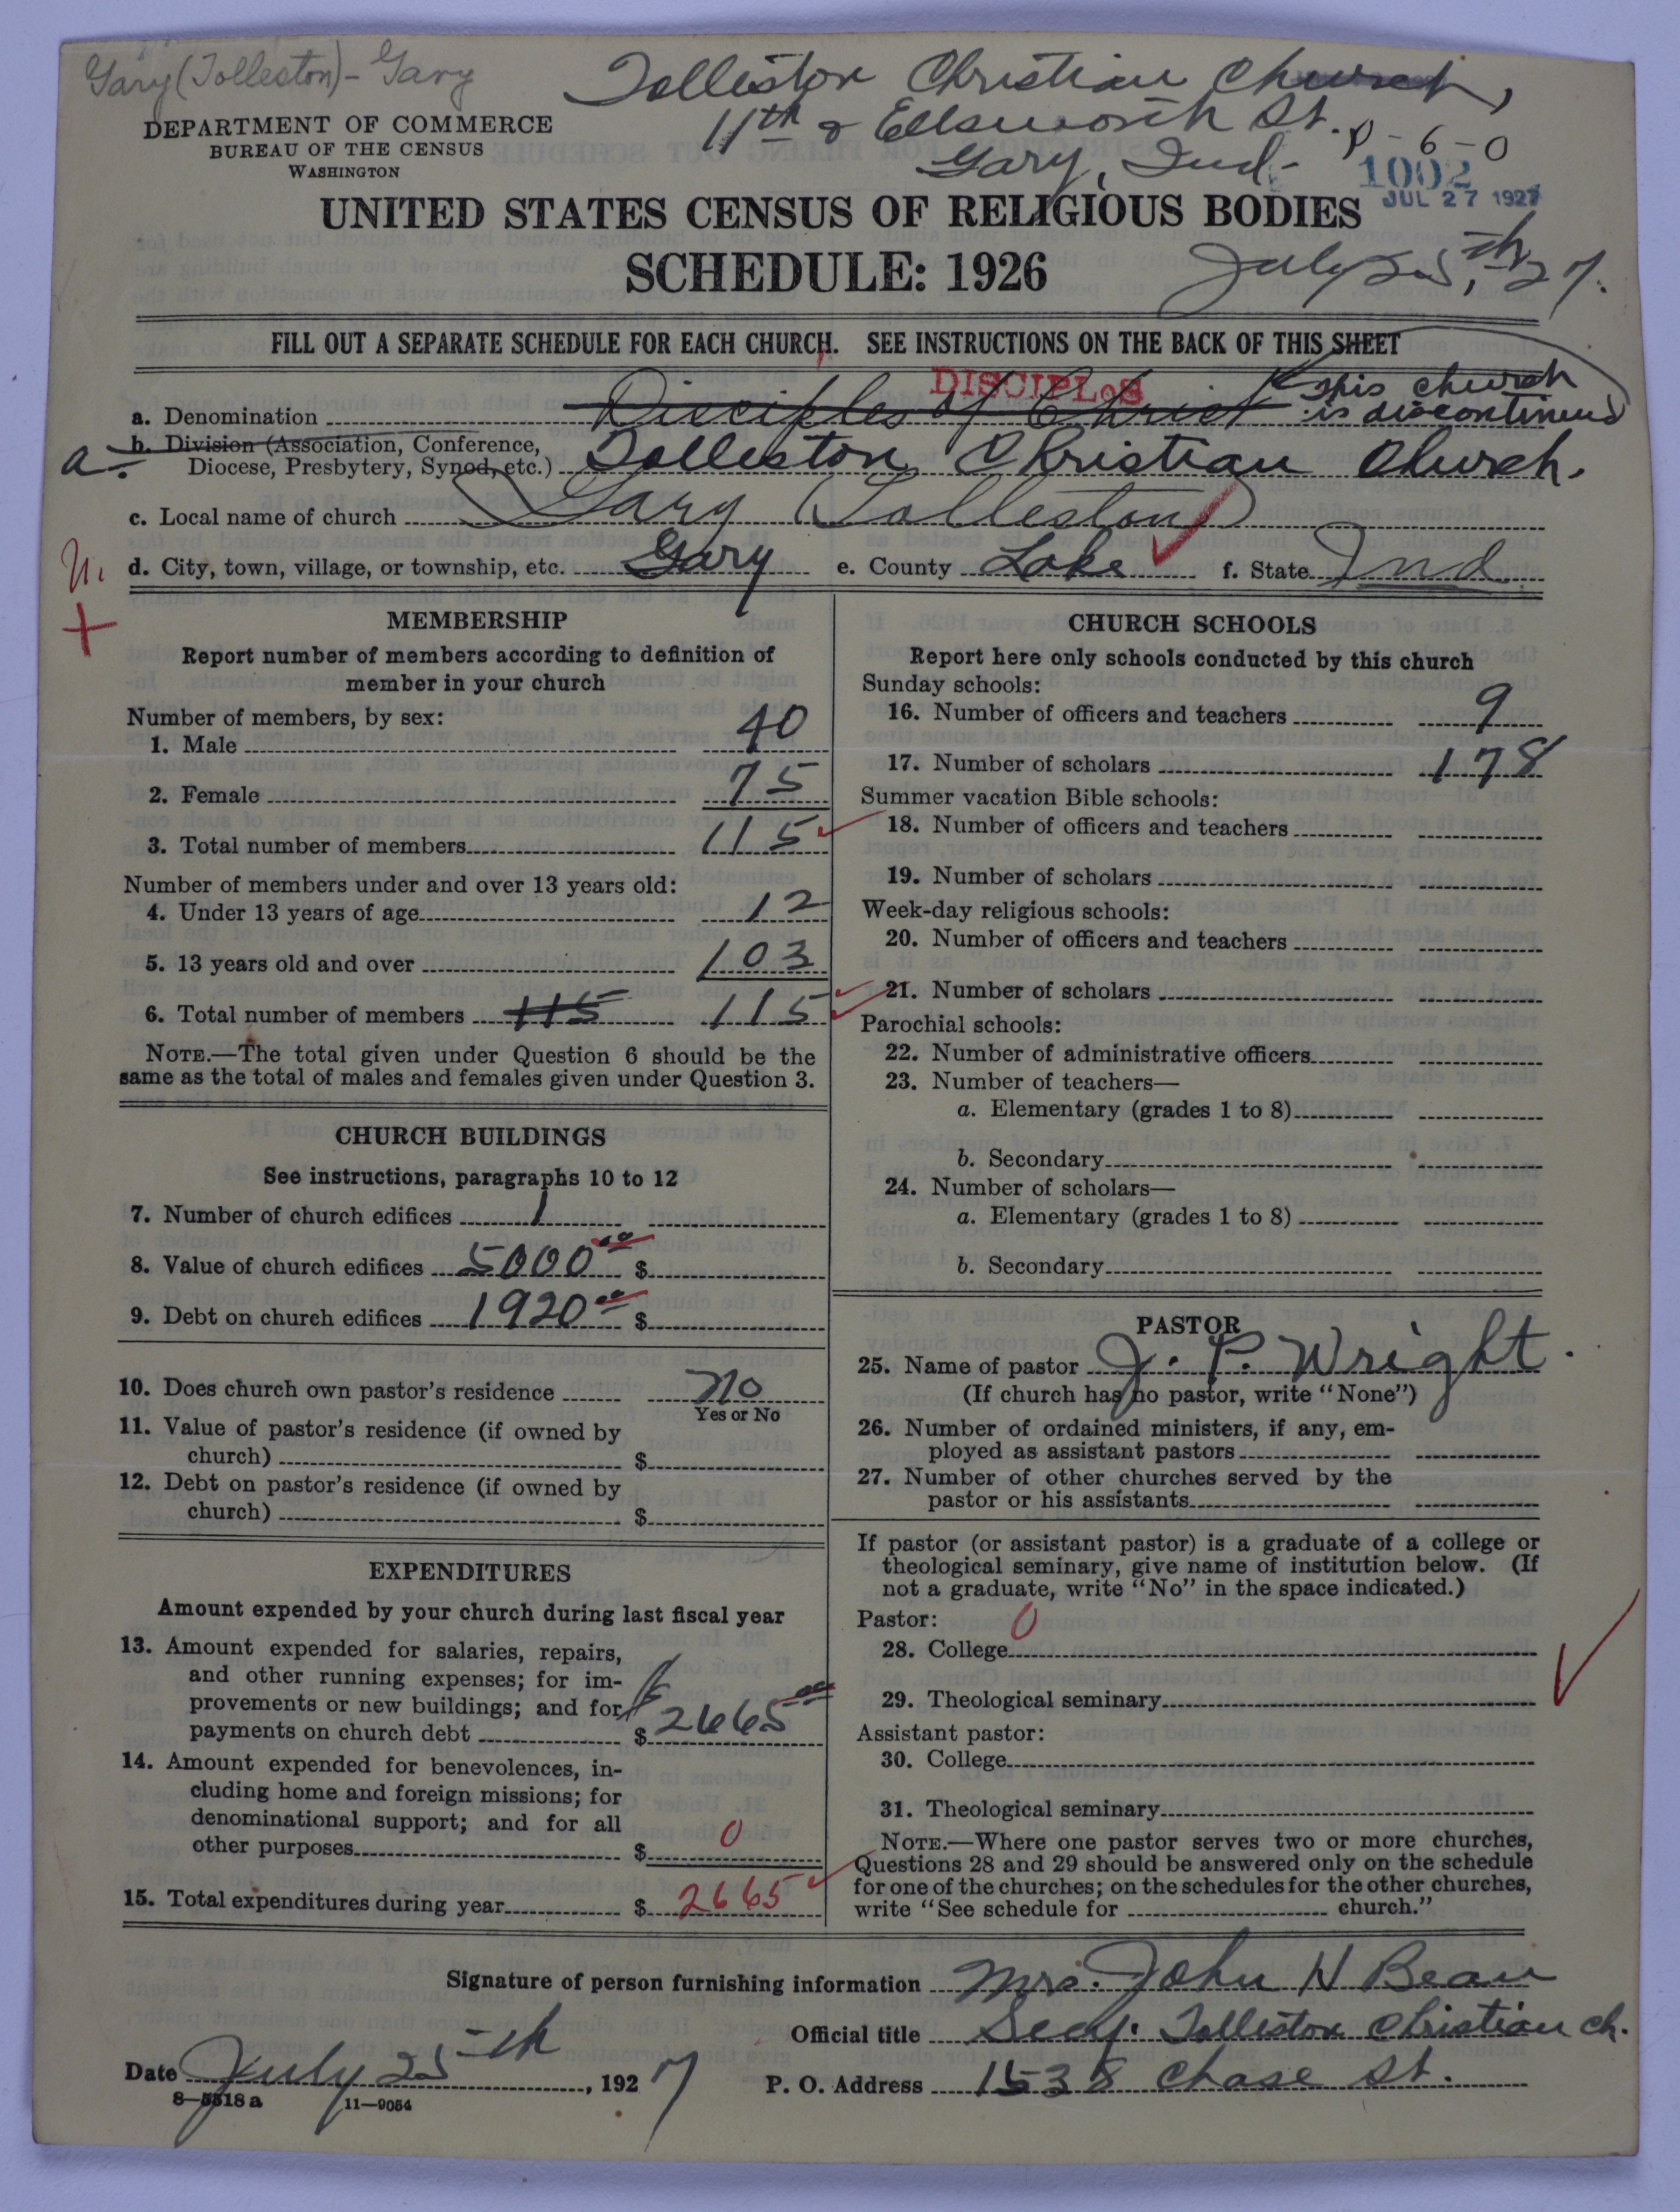 Gary (Tolleston) - Gary
Tolleston Christian Church,
11th & Ellsworth St.
Gary, Ind-
8-6-0
1002
JUL 27 1927
DEPARTMENT OF COMMERCE
BUREAU OF THE CENSUS
WASHINGTON
UNITED STATES CENSUS OF RELIGIOUS BODIES
SCHEDULE: 1926
July 25th, 27.
FILL OUT A SEPARATE SCHEDULE FOR EACH CHURCH. SEE INSTRUCTIONS ON THE BACK OF THIS SHEET
DISCIPLoS
This church
is discontinued
a. Denomination Disciples of Christ
a. b. Division (Association, Conference,
Diocese, Presbytery, Synod, etc.) Tolleston Christian Church.
c. Local name of church Gary (Tolleston)
d. City, town, village, or township, etc. Gary e. County Lake f. State Ind.
MEMBERSHIP
Report number of members according to definition of
member in your church
Number of members, by sex:
1. Male 40
2. Female 75
3. Total number of members 115
Number of members under and over 13 years old:
4. Under 13 years of age 12
5. 13 years old and over 103
6. Total number of members 115 115
NOTE.—The total given under Question 6 should be the
same as the total of males and females given under Question 3.
CHURCH BUILDINGS
See instructions, paragraphs 10 to 12
7. Number of church edifices 1
8. Value of church edifices 5000 00 $
9. Debt on church edifices 1920 00 $
10. Does church own pastor's residence no
Yes or No
11. Value of pastor's residence (if owned by
church) $
12. Debt on pastor's residence (if owned by
church) $
EXPENDITURES
Amount expended by your church during last fiscal year
13. Amount expended for salaries, repairs,
and other running expenses; for im-
provements or new buildings; and for
payments on church debt $ 2665 00
14. Amount expended for benevolences, in-
cluding home and foreign missions; for
denominational support; and for all
other purposes $ 0
15. Total expenditures during year $ 2665
CHURCH SCHOOLS
Report here only schools conducted by this church
Sunday schools:
16. Number of officers and teachers 9
17. Number of scholars 178
Summer vacation Bible schools:
18. Number of officers and teachers
19. Number of scholars
Week-day religious schools:
20. Number of officers and teachers
21. Number of scholars
Parochial schools:
22. Number of administrative officers
23. Number of teachers—
a. Elementary (grades 1 to 8)
b. Secondary
24. Number of scholars—
a. Elementary (grades 1 to 8)
b. Secondary
PASTOR
25. Name of pastor J. P. Wright.
(If church has no pastor, write "None")
26. Number of ordained ministers, if any, em-
ployed as assistant pastors
27. Number of other churches served by the
pastor or his assistants
If pastor (or assistant pastor) is a graduate of a college or
theological seminary, give name of institution below. (If
not a graduate, write "No" in the space indicated.)
Pastor: 0
28. College
29. Theological seminary
Assistant pastor:
30. College
31. Theological seminary
NOTE.—Where one pastor serves two or more churches,
Questions 28 and 29 should be answered only on the schedule
for one of the churches; on the schedules for the other churches,
write "See schedule for church."
Signature of person furnishing information Mrs. John H Bean
Official title Secy. Tolleston Christian Ch.
Date July 25th, 1927 P. O. Address 1538 Chase St.
8—5518 a 11—9054